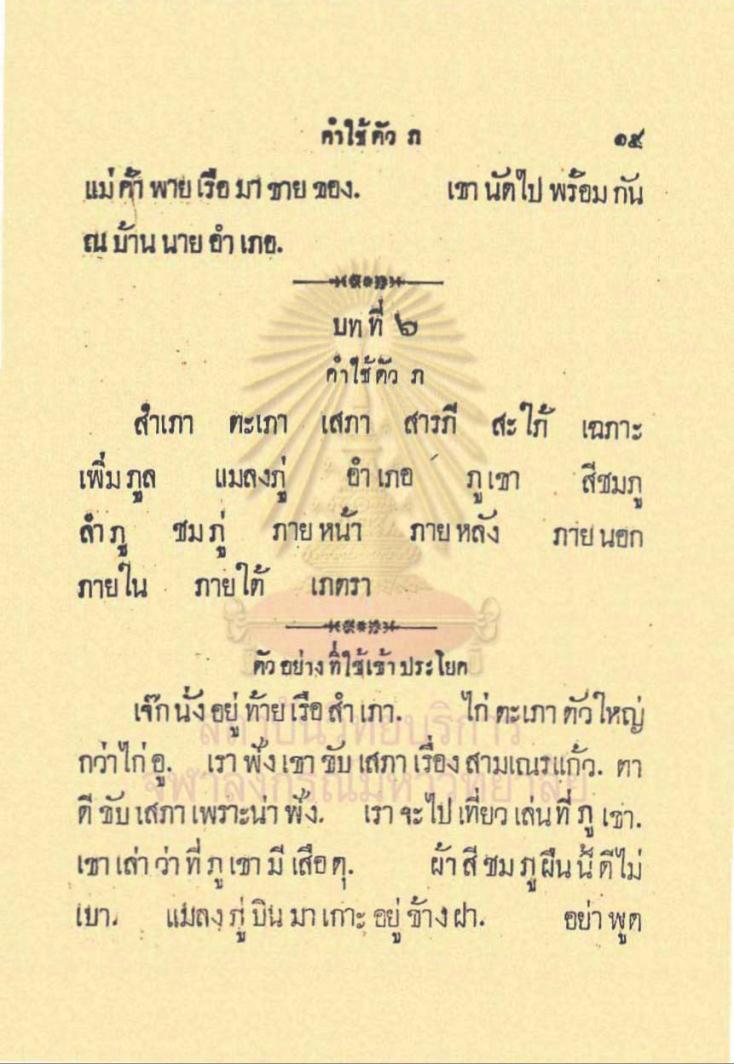 คำใช้ตัว ภ ๑๕
แม่ ค้า พาย เรือ มา ขาย ของ. เขา นัดไป พร้อม กัน
ณ บ้าน นาย อำ เภอ.
บท ที่ ๒
คำใช้ตัว ภ
สำเภา ตะเภา เสภา สารภี สะใภ้ เฉภาะ
เพิ่ม ภูล แมลงภู่ อำ เภอ ภู เขา สีชมภู
ลำ ภู ชม ภู่ ภาย หน้า ภาย หลัง ภาย นอก
ภายใน ภายใต้ เภตรา
ตัว อย่าง ที่ใช้เข้า ประโยค
เจ๊ก นั่ง อยู่ ท้าย เรือ สำ เภา. ไก่ ตะเภา ตัวใหญ่
กว่าไก่ อู. เรา ฟัง เขา ขับ เสภา เรื่อง สามเณรแก้ว. ตา
ดี ขับ เสภา เพราะน่า ฟัง. เรา จะไป เที่ยว เล่น ที่ ภู เขา.
เขา เล่า ว่า ที่ ภู เขา มี เสือ ดุ. ผ้า สี ชม ภู ผืน นี้ ดีไม่
เบา. แมลง ภู่ บิน มา เกาะ อยู่ ข้าง ฝา. อย่า พูด
สถาบันวิทยบริการ
จุฬาลงกรณ์มหาวิทยาลัย